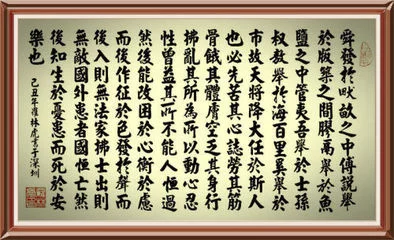 舜發於畎畝之中傅說舉
於版築之間膠鬲舉於魚
鹽之中管夷吾舉於士孫
叔敖舉於海百里奚舉於
市故天將降大任於斯人
也必先苦其心志勞其筋
骨餓其體膚空乏其身行
拂亂其所為所以動心忍
性曾益其所不能人恒過
然後能改困於心衡於慮
而後作征於色發於聲而
後入則無法家拂士出則
無敵國外患者國恒亡然
後知生於憂患而死於安
樂也
己丑年林虎書于深圳